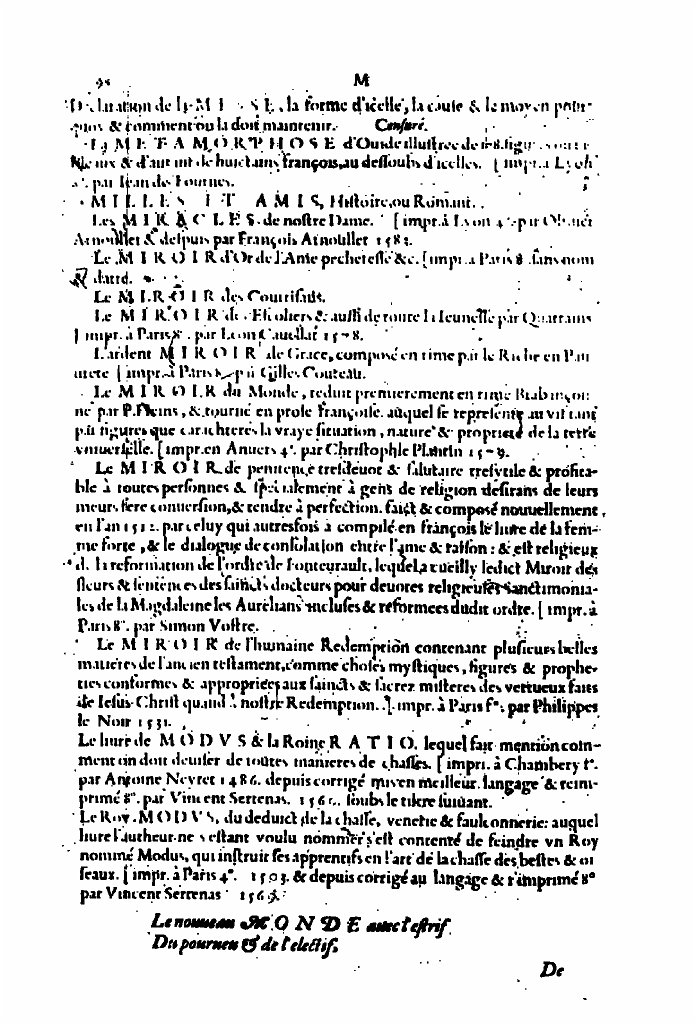 M
Declaration de la M E S S E, la forme d'icelle, la cause & le moyen pour-
quoy & comment on la doit maintenir. Censuré.
La M E T A M O R P H O S E d'Ouide illustree de 178. figu.
& d'autant de huictains françois, au dessoubs d'icelles. [ impr. a Lyon
8°. par Iean de Tournes.
M I L L E S E T A M I S, Histoire, ou Romant.
Les M I R A C L E S de nostre Dame. [ impr. à Lyon 4°. par Oliuier
Arnoullet & despuis par François Arnoullet
Le M I R O I R d'Or de l'Ame pecheresse &c. [ impr. a Paris 8. sans nom
& datte.
Le M I R O I R des Courtisans.
Le M I R O I R des Escoliers & aussi de toute la Ieunesse par Quatrains
[ impr. à Paris 8°. par Leon Cauellat 1578.
L'ardent M I R O I R de Grace, composé en rime par le Riche en Pau
ureté [ impr. à Paris 8. par Gilles Couteau.
Le M I R O I R du Monde, reduit premierement en rime Brabançon-
ne par P. Heins, & tourné en prose Françoise. auquel se represente au vif tant
par figures que caracteres la vraye situation, nature & proprieté de la terre
vniuerselle. [ impr. en Anuers 4°. par Christophle Plantin 1579.
Le M I R O I R de penitence tresdeuot & salutaire tresvtile & profita-
ble à toutes personnes & specialement à gens de religion desirans de leurs
meurs fere conuersion, & tendre à perfection. faict & composé nouuellement
en l'an 1512. par celuy qui autresfois à compilé en françois le liure de la fem-
me forte, & le dialogue de consolation entre l'ame & raison : & est religieux
d. la reformation de l'ordre de Fonteurault. lequel a cueilly ledict Miroir des
fleurs & sentences des saincts docteurs pour deuotes religieuses sanctimonia-
les de la Magdaleine les Aurelians incluses & reformees dudit ordre. [ impr. à
Paris 8°. par Simon Vostre.
Le M I R O I R de l'humaine Redemption contenant plusieurs belles
matieres de l'ancien testament, comme choses mystiques, figures & prophe-
ties conformes & appropriees aux saincts & sacrez misteres des vertueux faits
de Iesus Christ quand à nostre Redemption. [ impr. à Paris f°. par Philippes
le Noir 1531.
Le liure de M O D V S & la Roine R A T I O, lequel fait mention com-
ment on doit deuiser de toutes manieres de chasses. [ impri. à Chambery f°.
par Antoine Neyret 1486. depuis corrigé mis en meilleur langage & reim-
primé 8°. par Vincent Sertenas. 1560. soubs le tiltre suiuant.
Le Roy M O D V S, du deduict de la chasse, venerie & faulconnerie: auquel
liure l'autheur ne s'estant voulu nommer s'est contenté de feindre vn Roy
nommé Modus, qui instruit ses apprentifs en l'art de la chasse des bestes & oi
seaux. [ impr. à Paris 4°. & depuis corrigé au langage & r'imprimé 8°
par Vincent Sertenas
Le nouueau M O N D E auec l'estrif
Du pourueu & de l'electif.
De